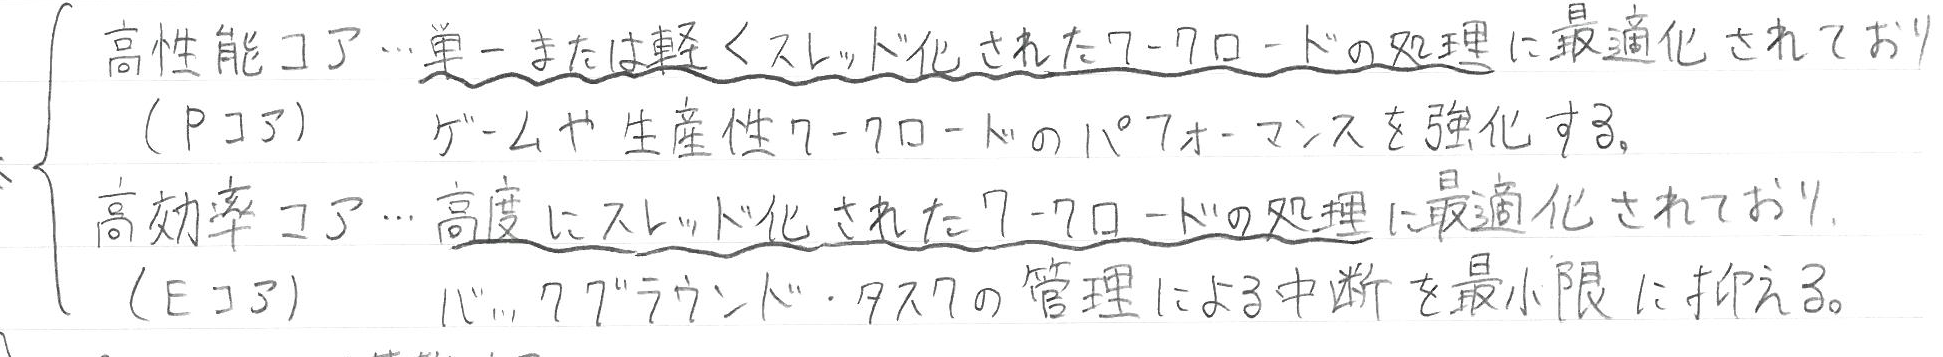 高性能コア…単一または軽くスレッド化されたワークロードの処理に最適化されており
(Pコア) ゲームや生産性ワークロードのパフォーマンスを強化する。
高効率コア…高度にスレッド化されたワークロードの処理に最適化されており、
(Eコア) バックグラウンド・タスクの管理による中断を最小限に抑える。